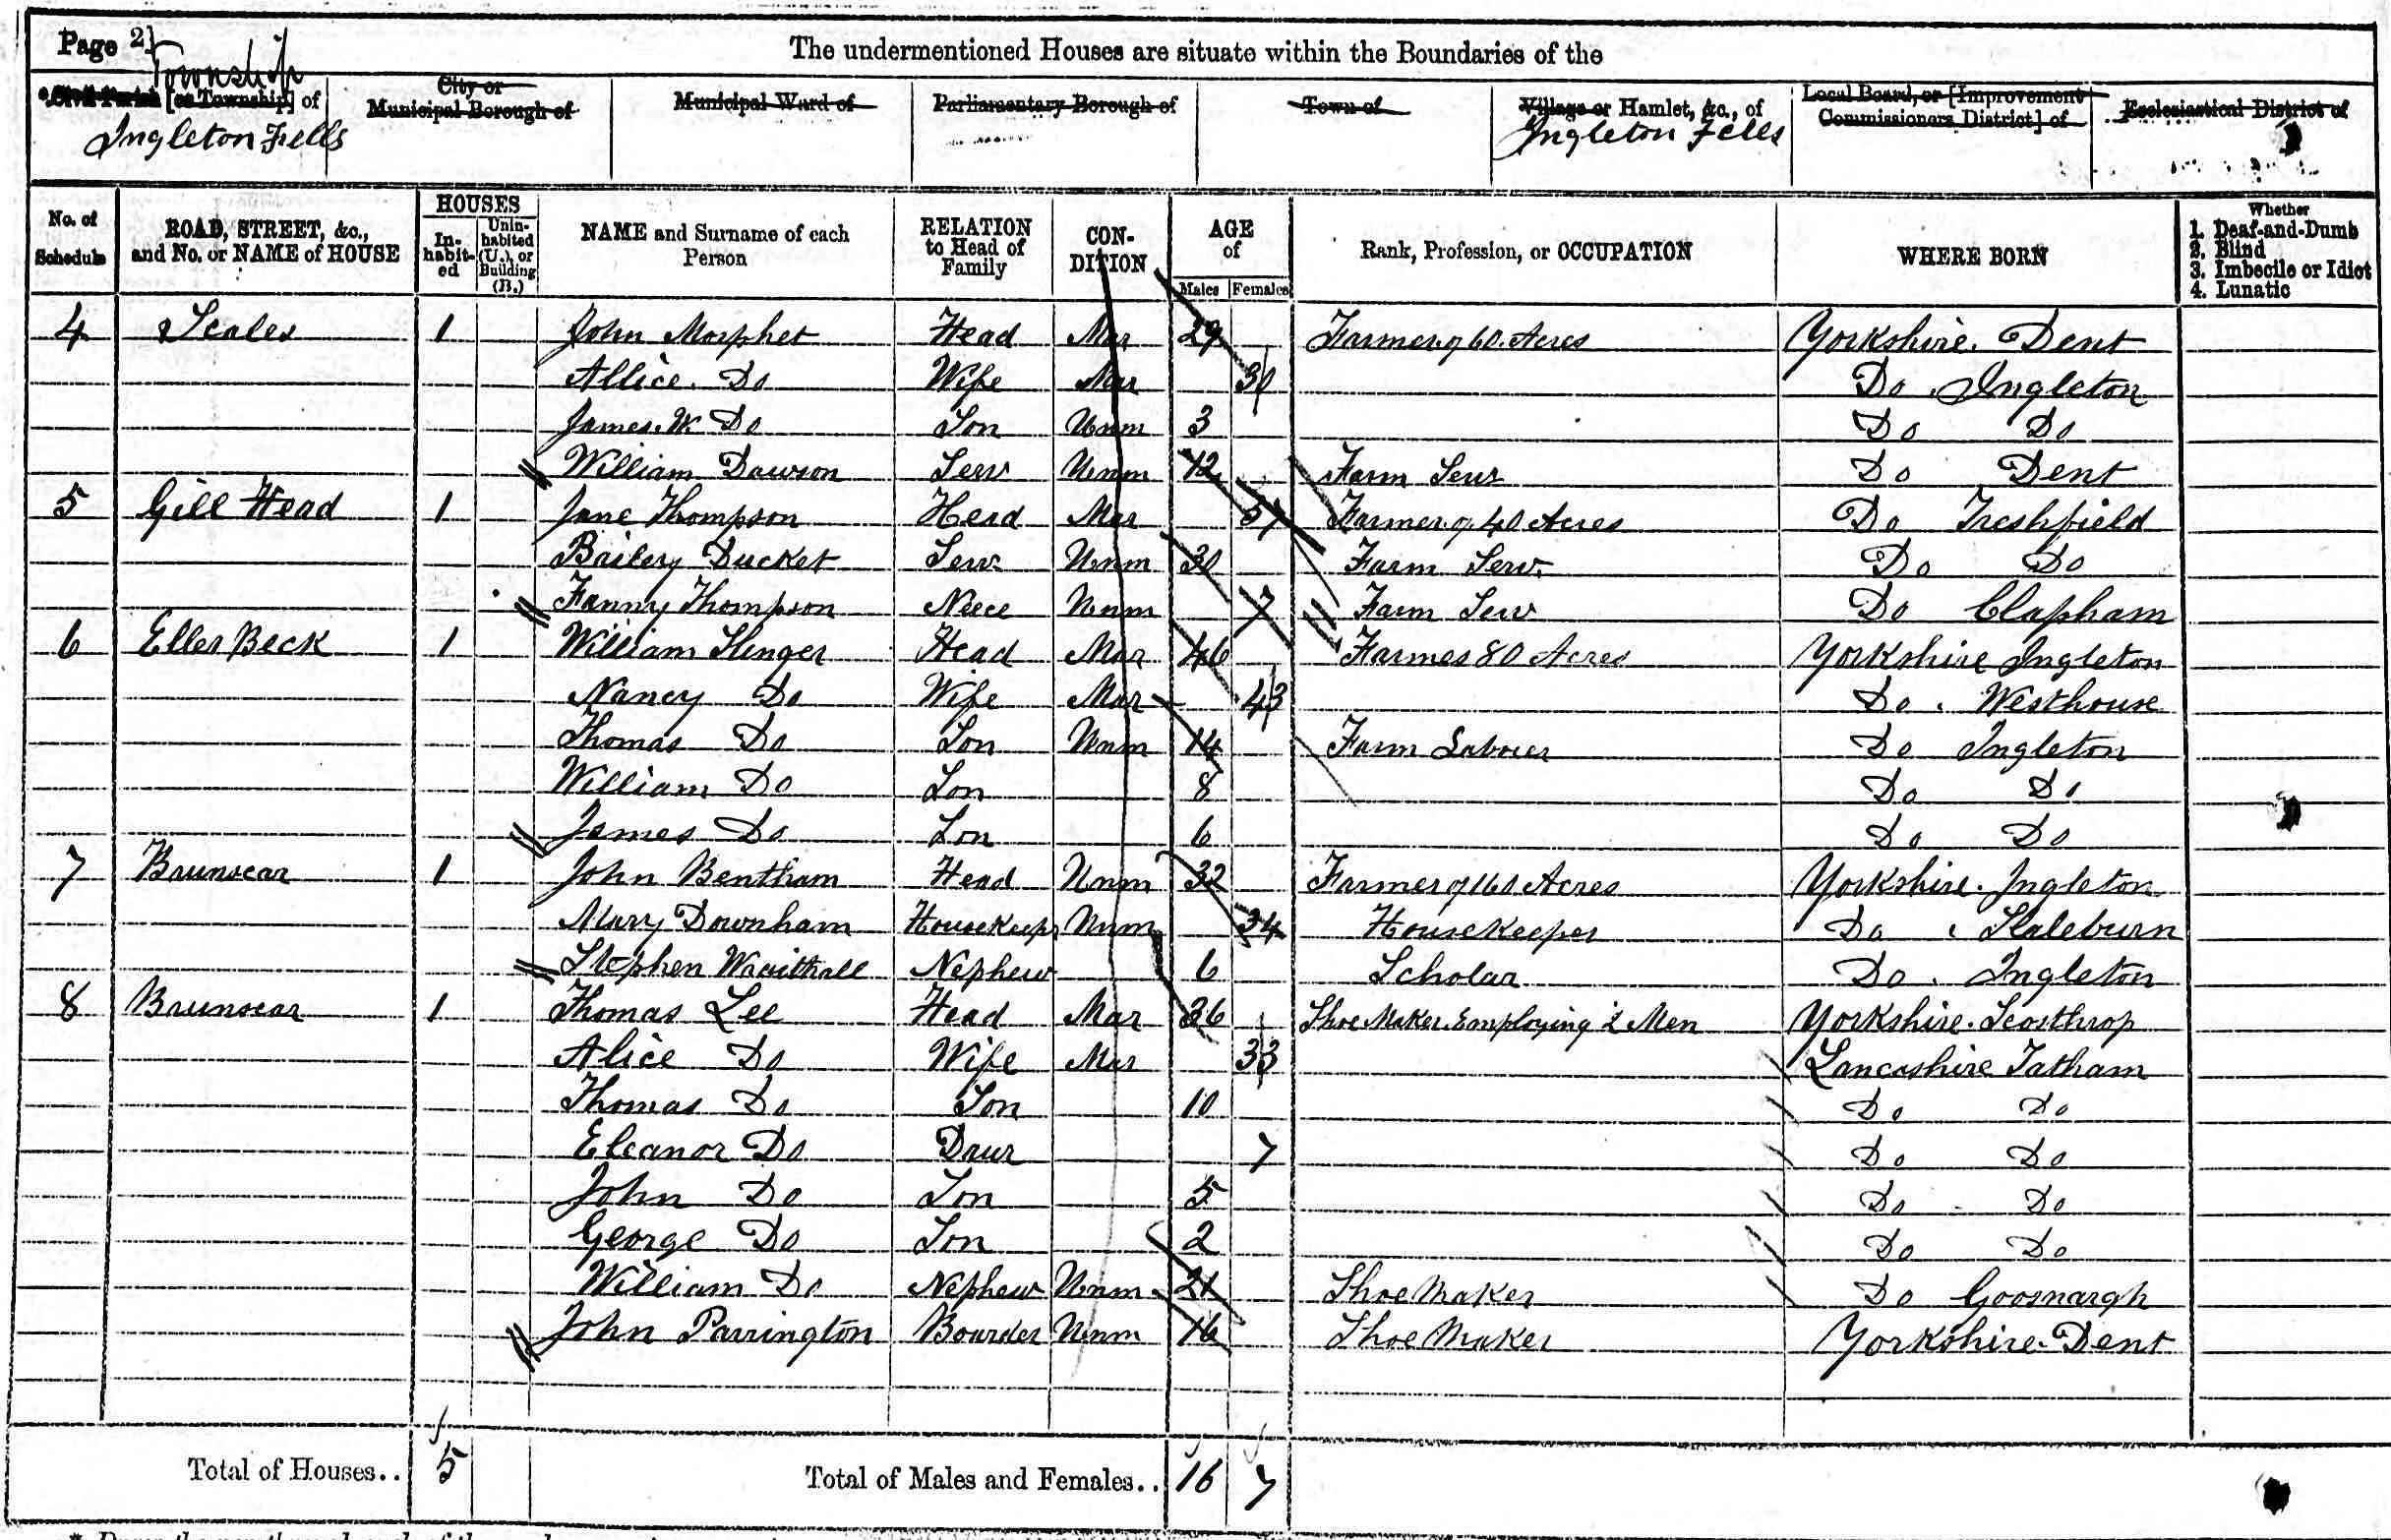 Page 2]
The undermentioned Houses are situate within the Boundaries of the
Township
Civil Parish [or Township] of
City or
Municipal Borough of
Municipal Ward of
Parliamentary Borough of
Town of
Village or Hamlet, &c., of
Local Board, or [Improvement
Commissioners District] of
Ecclesiastical District of
Ingleton Fells
Ingleton Fells
No. of Schedule
ROAD, STREET, &c., and No. or NAME of HOUSE
HOUSES
In-habit-ed
Unin-habited (U.), or Building (B.)
NAME and Surname of each Person
RELATION to Head of Family
CON-DITION
AGE of
Males Females
Rank, Profession, or OCCUPATION
WHERE BORN
Whether
1. Deaf-and-Dumb
2. Blind
3. Imbecile or Idiot
4. Lunatic
4 Scales 1 John Morphet Head Mar 29 Farmer of 60 Acres Yorkshire. Dent
Allice. Do Wife Mar 30 Do. Ingleton
James. W. Do Son Unm 3 Do Do
William Dawson Serv Unm 12 Farm Serv Do Dent
5 Gill Head 1 Jane Thompson Head Mar 57 Farmer of 40 Acres Do Freshfield
Bailery Ducket Serv Unm 30 Farm Serv. Do Do
Fanny Thompson Neece Unm 7 Farm Serv Do Clapham
6 Eller Beck 1 William Slinger Head Mar 46 Farmer 80 Acres Yorkshire Ingleton
Nancy Do Wife Mar 43 Do. Westhouse
Thomas Do Son Unm 14 Farm Labourer Do Ingleton
William Do Son 8 Do Do
James Do Son 6 Do Do
7 Brunscar 1 John Bentham Head Unm 32 Farmer of 160 Acres Yorkshire. Ingleton
Mary Downham Housekeeper Unm 34 Housekeeper Do. Slaleburn
Stephen Nephew 6 Scholar Do. Ingleton
8 Brunscar 1 Thomas Lee Head Mar 36 Shoe Maker Employing 2 Men Yorkshire. Scosthrop
Alice Do Wife Mar 33 Lancashire Tatham
Thomas Do Son 10 Do Do
Eleanor Do Daur 7 Do Do
John Do Son 5 Do Do
George Do Son 2 Do Do
William Do Nephew Unm 21 Shoe Maker Do Goosnargh
John Parrington Bourder Unm 16 Shoe Maker Yorkshire. Dent
Total of Houses.. 5 Total of Males and Females.. 16 7